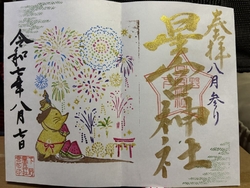 奉拝
八月参り
星宮神社
令和七年八月七日